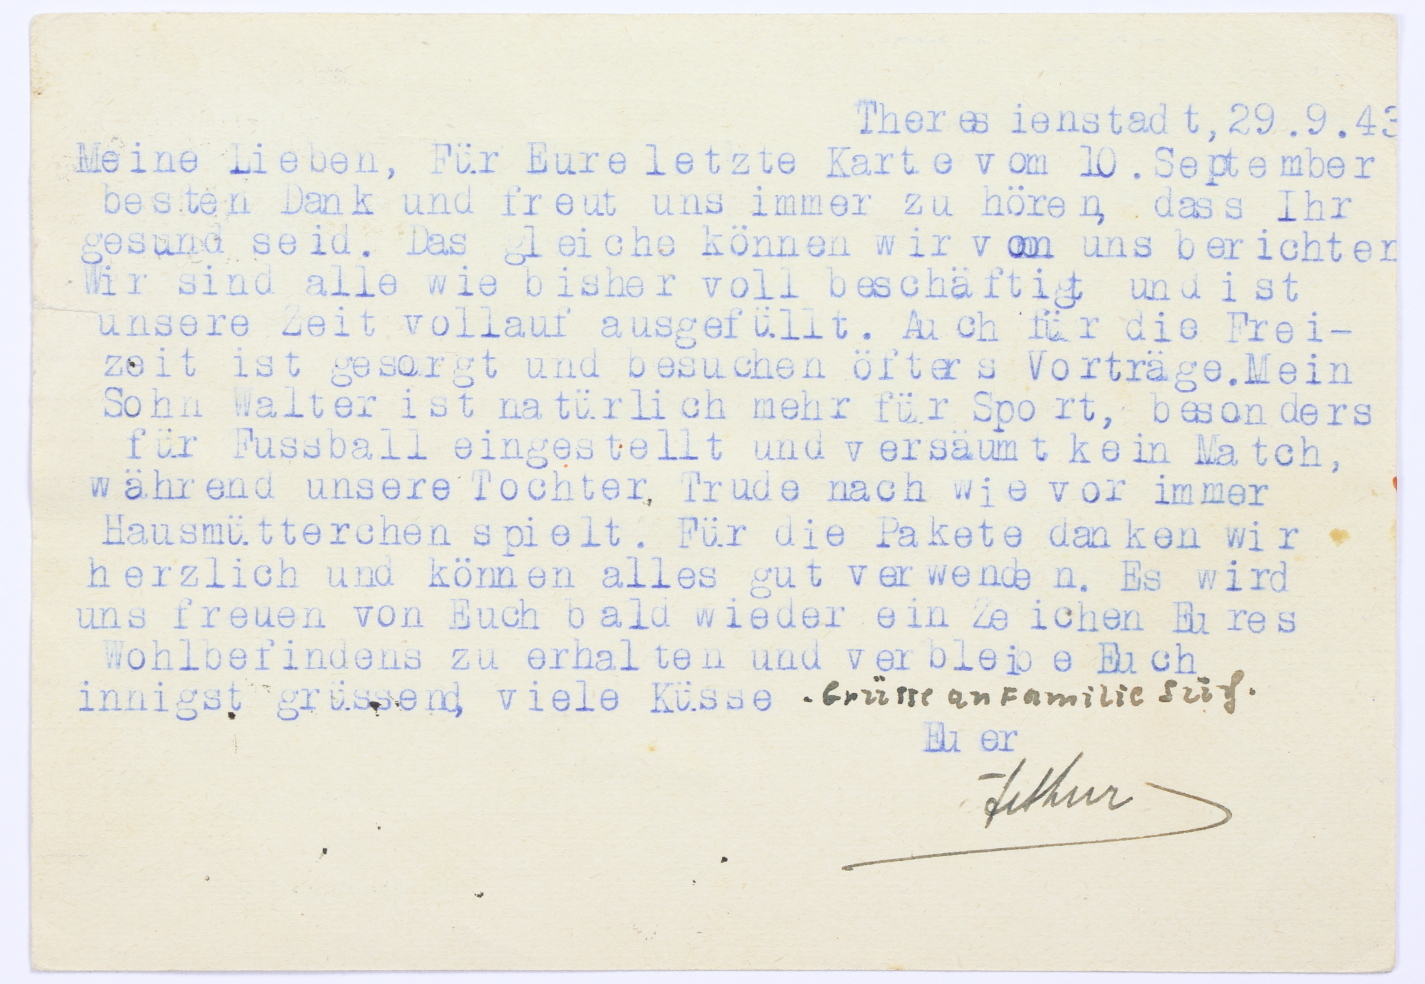 Theresienstadt, 29.9.43
Meine Lieben, Für Eure letzte Karte vom 10. September
besten Dank und freut uns immer zu hören, dass Ihr
gesund seid. Das gleiche können wir von uns berichten
Wir sind alle wie bisher voll beschäftigt und ist
unsere Zeit vollauf ausgefüllt. Auch für die Frei-
zeit ist gesorgt und besuchen öfters Vorträge. Mein
Sohn Walter ist natürlich mehr für Sport, besonders
für Fussball eingestellt und versäumt kein Match,
während unsere Tochter Trude nach wie vor immer
Hausmütterchen spielt. Für die Pakete danken wir
herzlich und können alles gut verwenden. Es wird
uns freuen von Euch bald wieder ein Zeichen Eures
Wohlbefindens zu erhalten und verbleibe Euch
innigst grüssend, viele Küsse. Grüsse an Familie
Euer
Arthur